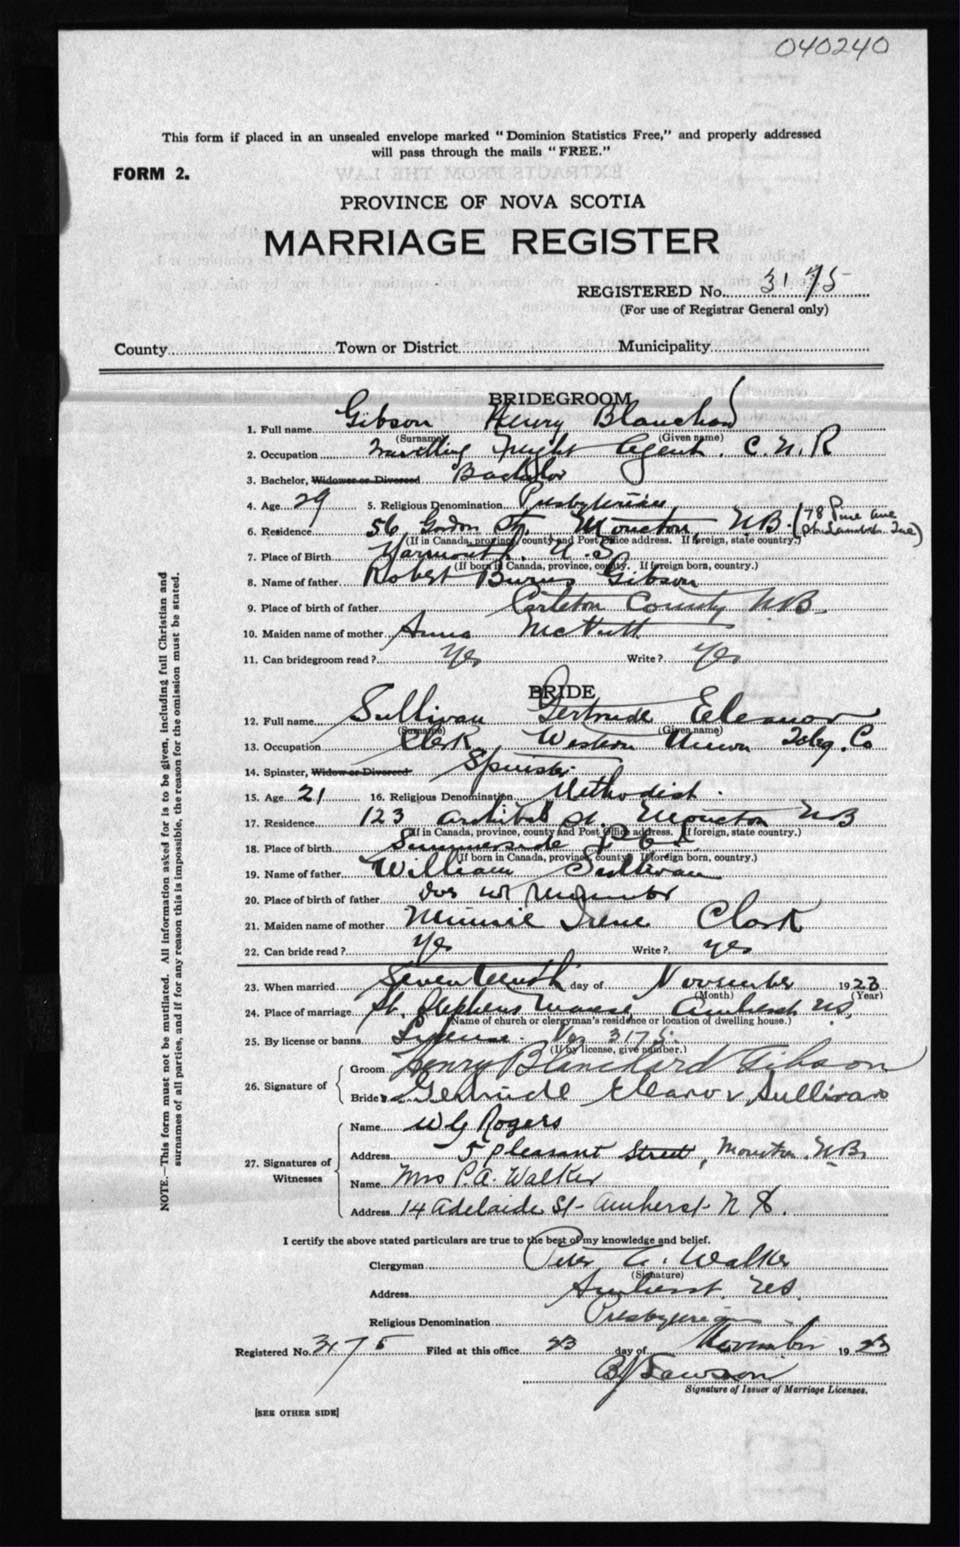 040240
This form if placed in an unsealed envelope marked "Dominion Statistics Free," and properly addressed
will pass through the mails "FREE."
FORM 2.
PROVINCE OF NOVA SCOTIA
MARRIAGE REGISTER
REGISTERED No. 3175
(For use of Registrar General only)
County Town or District Municipality
BRIDEGROOM
1. Full name Gibson Henry Blanchard
(Surname) (Given name)
2. Occupation Travelling Freight Agent. C.N.R
3. Bachelor, Widower or Divorced Bachelor
4. Age 29 5. Religious Denomination Presbyterian
6. Residence 56 Gordon St. Moncton N.B. (78 Pine Ave St. Lambert Que)
(If in Canada, province, county and Post Office address. If foreign, state country.)
7. Place of Birth Yarmouth. N.S.
(If born in Canada, province, county. If foreign born, country.)
8. Name of father Robert Burns Gibson
9. Place of birth of father Carleton County N.B.
10. Maiden name of mother Anna McNutt
11. Can bridegroom read? Yes Write? Yes
BRIDE
12. Full name Sullivan Gertrude Eleanor
(Surname) (Given name)
13. Occupation Clerk Western Union Teleg. Co
14. Spinster, Widow or Divorced Spinster
15. Age 21 16. Religious Denomination Methodist.
17. Residence 123 Archibald St. Moncton NB
(If in Canada, province, county and Post Office address. If foreign, state country.)
18. Place of birth Summerside P.E.I.
(If born in Canada, province, county. If foreign born, country.)
19. Name of father William Sullivan
20. Place of birth of father Does not remember
21. Maiden name of mother Minnie Irene Clark
22. Can bride read? Yes Write? Yes
23. When married Seventeenth day of November 1923
(Month) (Year)
24. Place of marriage St. Stephens Manse, Amherst N.S.
(Name of church or clergyman's residence or location of dwelling house.)
25. By license or banns License. No. 3175.
(If by license, give number.)
26. Signature of Groom Henry Blanchard Gibson
Bride Gertrude Eleanor Sullivan
27. Signatures of Witnesses Name W G Rogers
Address 5 Pleasant Street, Moncton N.B.
Name Mrs P.A. Walker
Address 14 Adelaide St- Amherst- N.S.
I certify the above stated particulars are true to the best of my knowledge and belief.
Clergyman Peter A. Walker
(Signature)
Address Amherst. N.S.
Religious Denomination Presbyterian
Registered No. 3175 Filed at this office 23 day of November 1923
Signature of Issuer of Marriage Licenses.
[SEE OTHER SIDE]
NOTE.—This form must not be mutilated. All information asked for is to be given, including full Christian and
surnames of all parties, and if for any reason this is impossible, the reason for the omission must be stated.